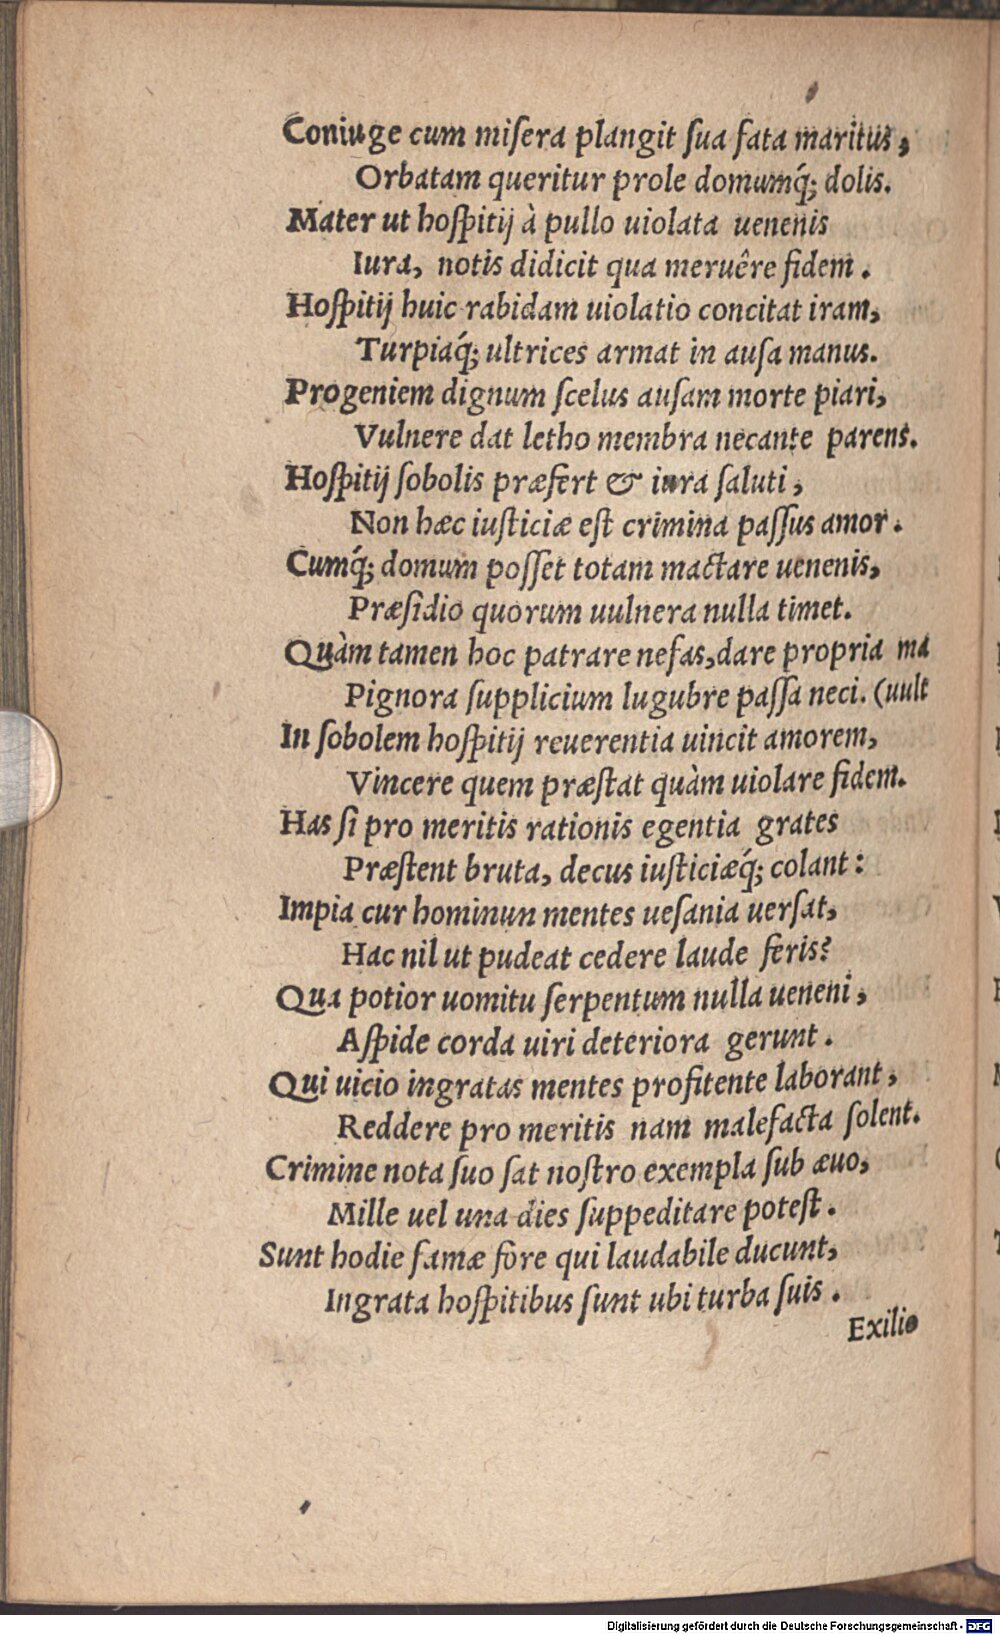 Coniuge cum miſera plangit ſua fata maritus,
Orbatam queritur prole domumq́; dolis.
Mater ut hoſpitij à pullo uiolata uenenis
Iura, notis didicit qua meruêre fidem.
Hoſpitij huic rabidam uiolatio concitat iram,
Turpiaq́; ultrices armat in auſa manus.
Progeniem dignum ſcelus auſam morte piari,
Vulnere dat letho membra necante parens.
Hoſpitij ſobolis præfert & iura ſaluti,
Non hæc iuſticiæ eſt crimina paſſus amor.
Cumq́; domum poſſet totam mactare uenenis,
Præſidio quorum uulnera nulla timet.
Quàm tamen hoc patrare nefas, dare propria ma
Pignora ſupplicium lugubre paſſa neci. (uult
In ſobolem hoſpitij reuerentia uincit amorem,
Vincere quem præſtat quàm uiolare fidem.
Has ſi pro meritis rationis egentia grates
Præſtent bruta, decus iuſticiæq́; colant:
Impia cur hominun mentes ueſania uerſat,
Hac nil ut pudeat cedere laude feris?
Qua potior uomitu ſerpentum nulla ueneni,
Aſpide corda uiri deteriora gerunt.
Qui uicio ingratas mentes profitente laborant,
Reddere pro meritis nam malefacta ſolent.
Crimine nota ſuo ſat noſtro exempla ſub æuo,
Mille uel una dies ſuppeditare poteſt.
Sunt hodie famæ fore qui laudabile ducunt,
Ingrata hoſpitibus ſunt ubi turba ſuis.
Exilio
Digitalisierung gefördert durch die Deutsche Forschungsgemeinschaft - DFG